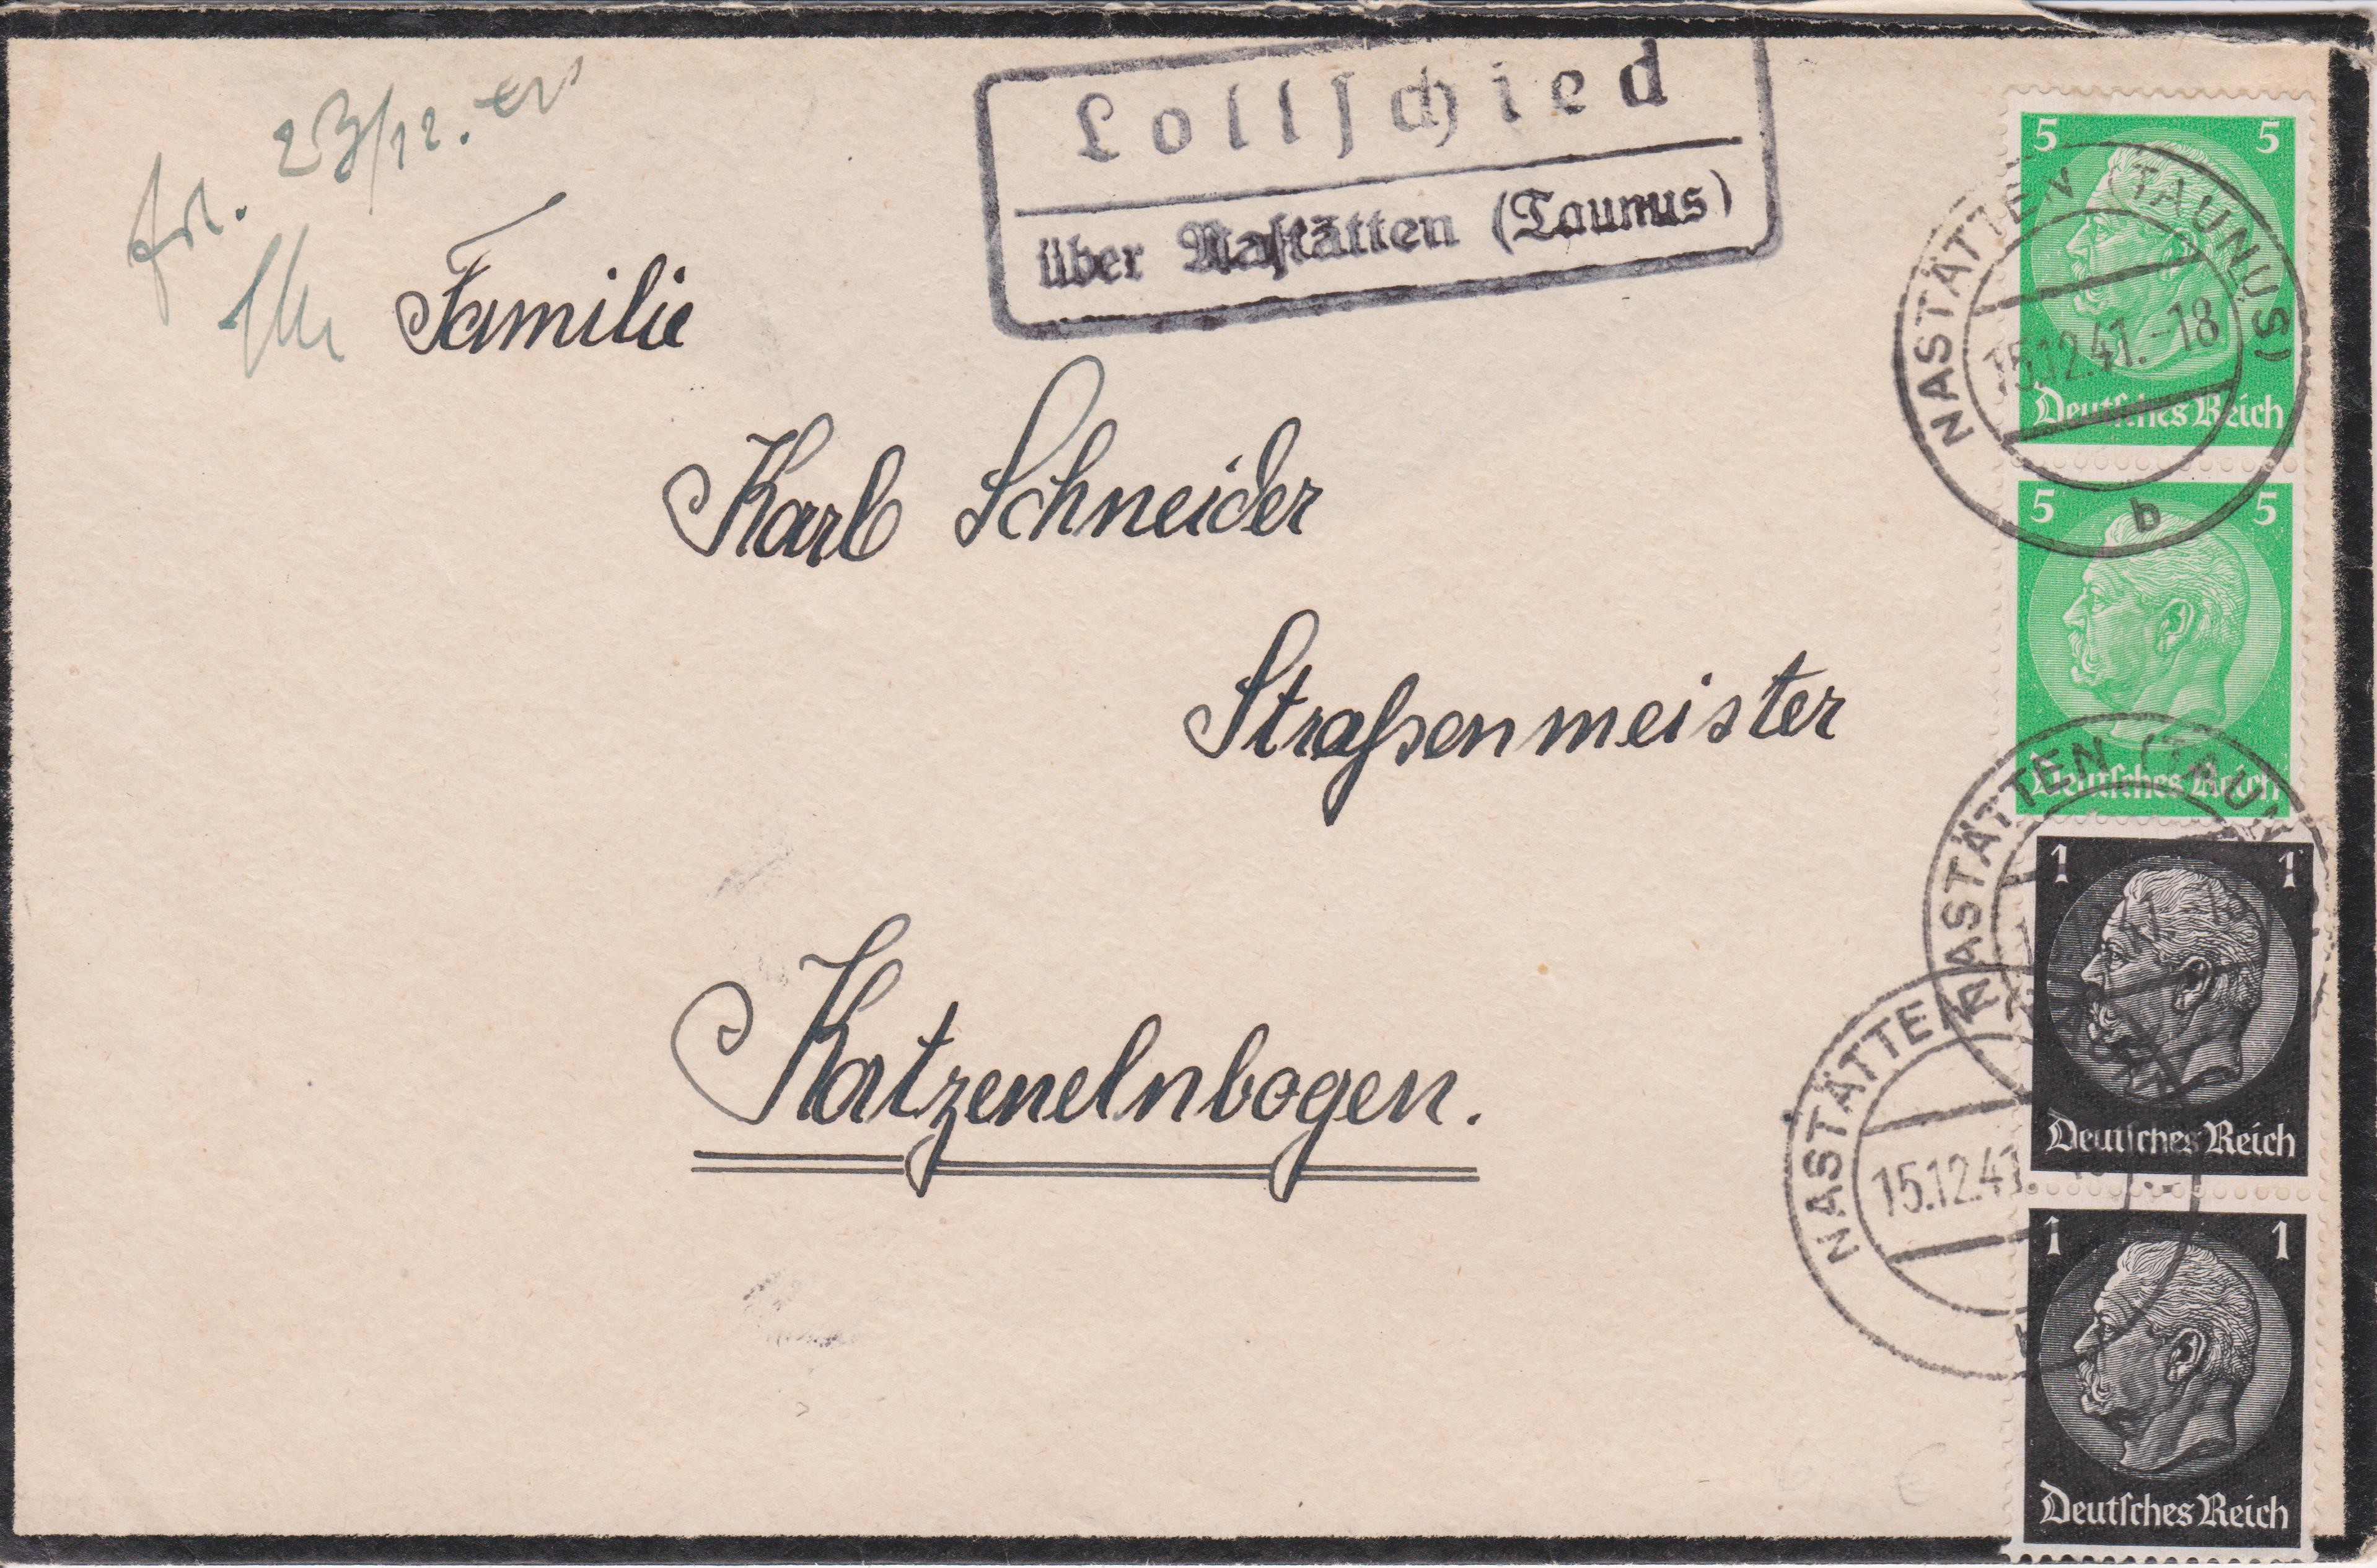 23/12.
Lollſchied
über Naſtätten (Taunus)
Familie
Karl Schneider
Straßenmeister
Katzenelnbogen.
5 5
NASTÄTTEN (TAUNUS)
15.12.41.-18
Deutſches Reich
b
5 5
Deutſches Reich
NASTÄTTEN (TAUN
1 1
Deutſches Reich
NASTÄTTEN
15.12.41.
1 1
Deutſches Reich